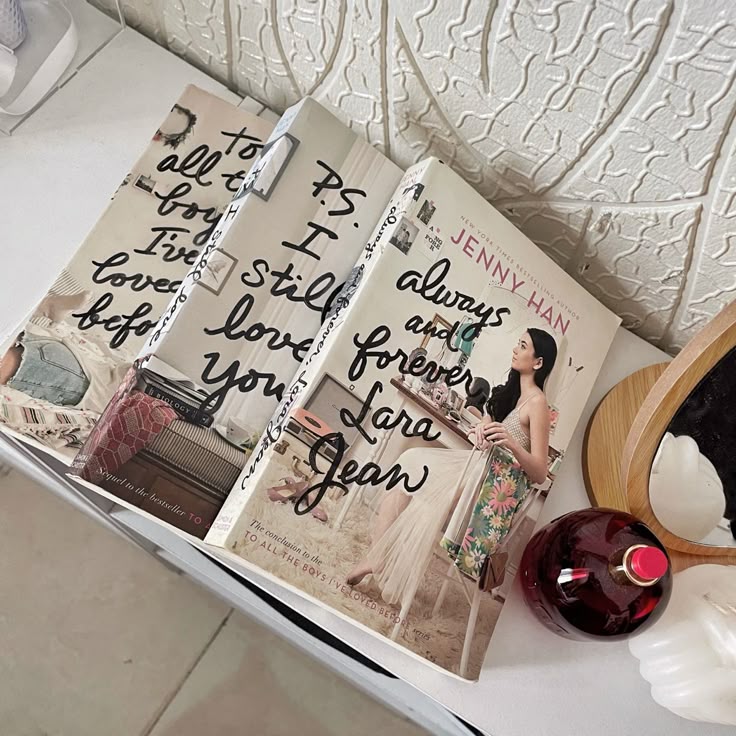 To
all t
boys
I've
loved
befo
P.S.
I
still
love
you
BIOLOGY
Sequel to the bestseller TO
always and forever, Lara Jean
NEW YORK TIMES BESTSELLING AUTHOR
JENNY HAN
always
and
forever,
Lara
Jean
The conclusion to the
TO ALL THE BOYS I'VE LOVED BEFORE series